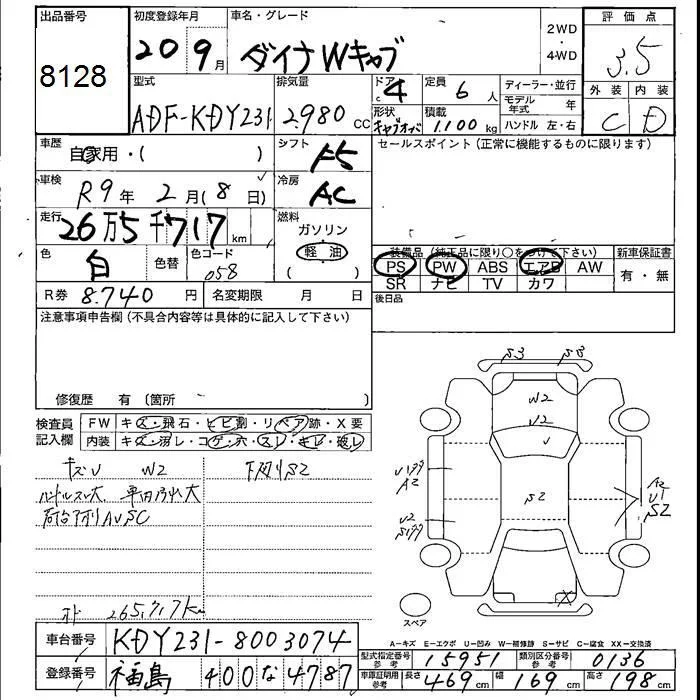 出品番号
8128
初度登録年月
20 9月
車名・グレード
ダイナWキャブ
2WD
・
4WD
評価点
3.5
外装 内装
C D
型式
ADF-KDY231
排気量
2980 cc
ドア
4
形状
定員
6 人
積載
1.100 kg
ディーラー・並行
モデル年式 年
ハンドル 左・右
車歴
自家用・( )
シフト
F5
セールスポイント(正常に機能するものに限ります)
車検
R9年 2月(8日)
冷房
AC
走行
26万5千717 km
燃料
ガソリン
軽油
( )
色
白
色替
色コード
058
装備品(純正品に限り○をつけて下さい)
PS PW ABS エアB AW
SR ナビ TV カワ
新車保証書
有・無
R券 8.740 円
名変期限 月 日
後日品
注意事項申告欄(不具合内容等は具体的に記入して下さい)
修復歴 有 〔箇所 〕
検査員記入欄
FW キズ・飛石・ヒビ割・リペア跡・X要
内装 キズ・汚レ・コゲ・穴・スレ・キレ・破レ
キズU W2
下廻りS2
265,717km
S3 S3
W2
W2
U
S2
A2
U2
A2
U1
S2
X
スペア
A-キズ E-エクボ U-凹み W-補修跡 S-サビ C-腐食 XX-交換済
車台番号 KDY231-8003074
登録番号 福島 400 な 4787
型式指定番号 参考 15951
類別区分番号 参考 0136
車庫証明用 参考 長さ 469cm 幅 169cm 高さ 198cm